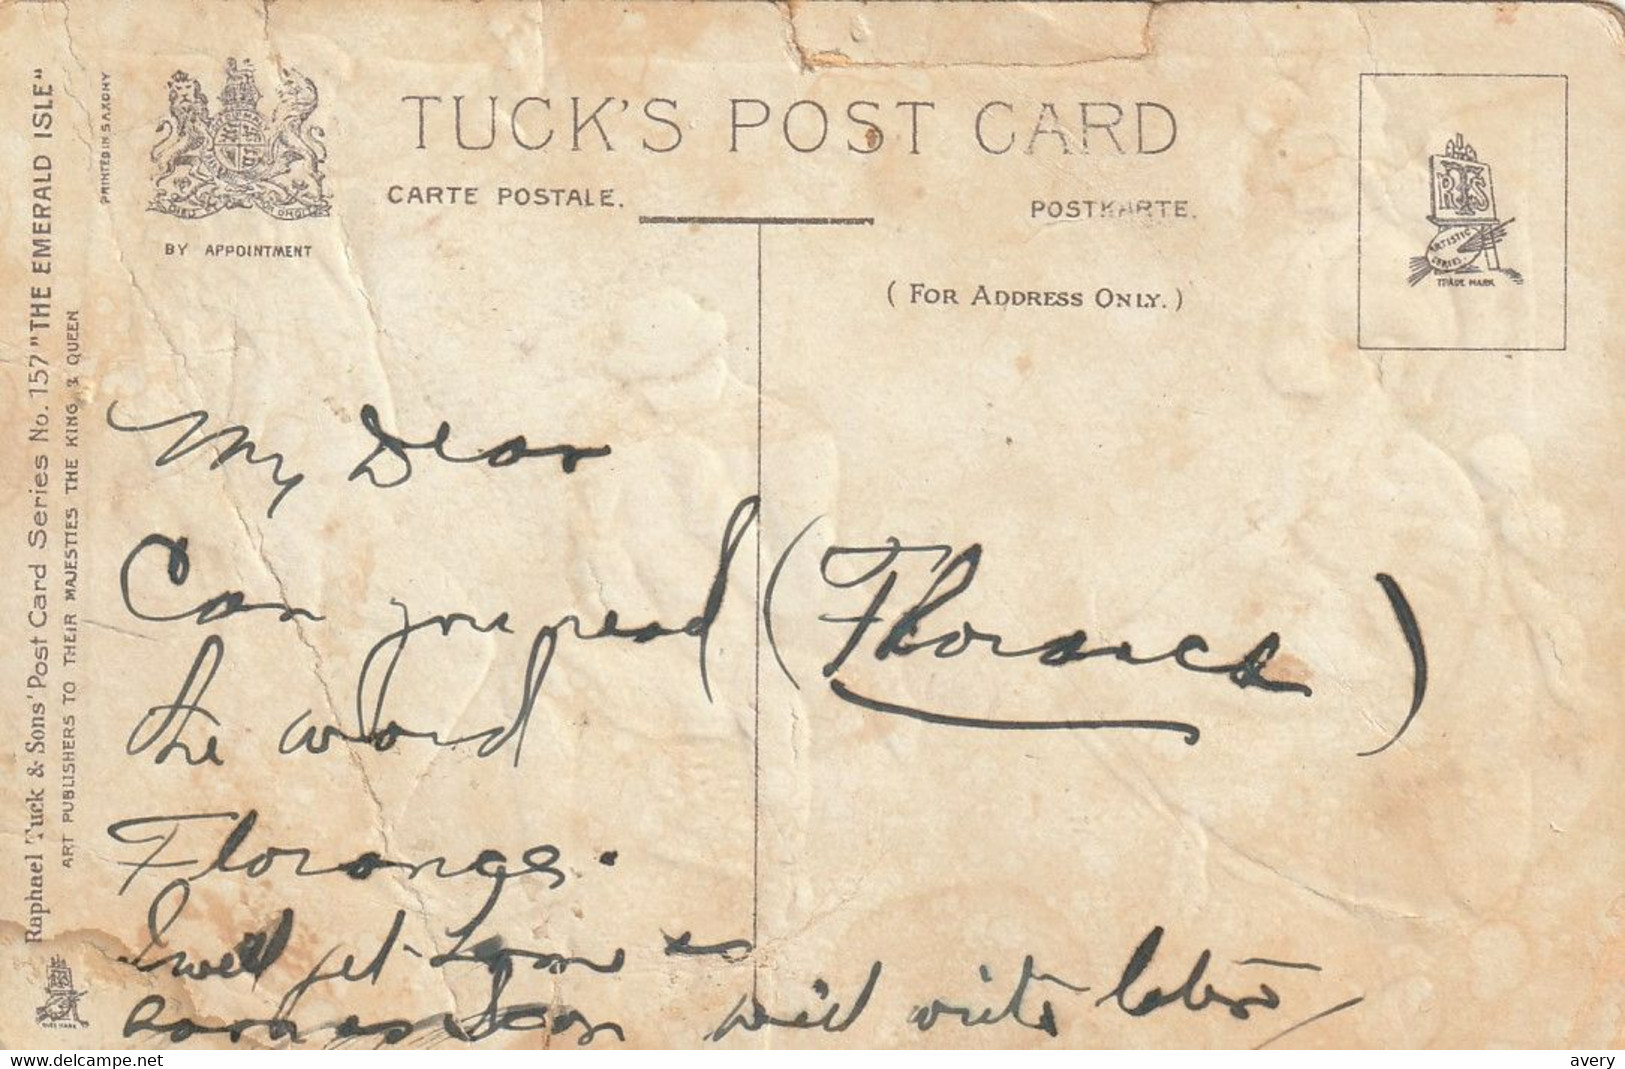 Raphael Tuck & Sons' Post Card Series No. 157 "THE EMERALD ISLE"
ART PUBLISHERS TO THEIR MAJESTIES THE KING & QUEEN
PRINTED IN SAXONY
BY APPOINTMENT
TUCK'S POST CARD
CARTE POSTALE.
POSTKARTE.
(FOR ADDRESS ONLY.)
RTS
ARTISTIC SERIES
TRADE MARK
My Dear
Can you read (Florance)
the word
Florance.
I will get home as
soon as I can will write later
avery